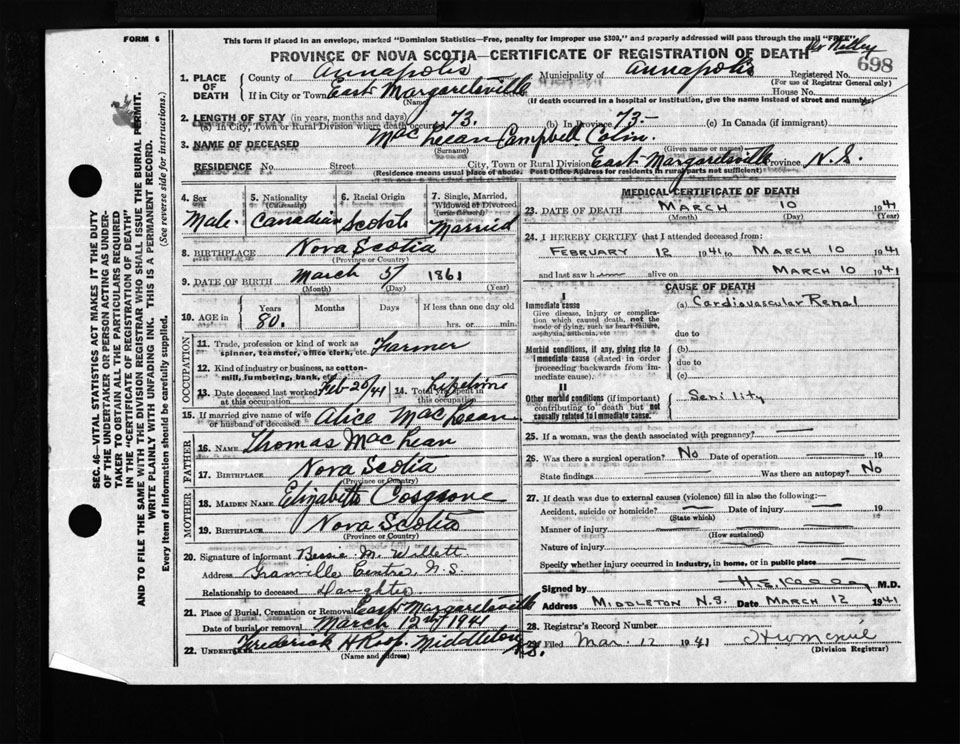 FORM 6
This form if placed in an envelope, marked "Dominion Statistics—Free, penalty for improper use $300," and properly addressed will pass through the mail "FREE"
PROVINCE OF NOVA SCOTIA—CERTIFICATE OF REGISTRATION OF DEATH
698
1. PLACE OF DEATH
County of Annapolis Municipality of Annapolis Registered No.
(For use of Registrar General only)
If in City or Town East Margaretsville House No.
(Name) (If death occurred in a hospital or institution, give the name instead of street and number)
2. LENGTH OF STAY (in years, months and days)
(a) In City, Town or Rural Division where death occurred 73. (b) In Province 73- (c) In Canada (if immigrant)
3. NAME OF DECEASED MacLean Campbell Colin.
(Surname) (Given name or names)
RESIDENCE No. Street City, Town or Rural Division East Margaretsville Province N.S.
(Residence means usual place of abode. Post Office Address for residents in rural parts not sufficient)
4. Sex Male.
5. Nationality (Citizenship) Canadian
6. Racial Origin Scotch
7. Single, Married, Widowed or Divorced (write the word) Married
8. BIRTHPLACE Nova Scotia
(Province or Country)
9. DATE OF BIRTH March 5/ 1861
(Month) (Day) (Year)
10. AGE in Years 80. Months Days If less than one day old
hrs. or min.
OCCUPATION
11. Trade, profession or kind of work as spinner, teamster, office clerk, etc. Farmer
12. Kind of industry or business, as cotton-mill, lumbering, bank, etc.
13. Date deceased last worked at this occupation Feb 20/41 14. Total years spent in this occupation Lifetime
15. If married give name of wife or husband of deceased Alice MacLean
FATHER
16. NAME Thomas MacLean
17. BIRTHPLACE Nova Scotia
(Province or Country)
MOTHER
18. MAIDEN NAME Elizabeth Cosgrove
19. BIRTHPLACE Nova Scotia
(Province or Country)
20. Signature of informant Bessie M. Willett
Address Granville Centre, N.S.
Relationship to deceased Daughter
21. Place of Burial, Cremation or Removal East Margaretsville
Date of burial or removal March 12th 1941
22. UNDERTAKER Frederick H Roop Middleton N.S.
(Name and address)
MEDICAL CERTIFICATE OF DEATH
23. DATE OF DEATH MARCH 10 1941
(Month) (Day) (Year)
24. I HEREBY CERTIFY that I attended deceased from:
FEBRUARY 12 1941 to MARCH 10 1941
and last saw him alive on MARCH 10 1941
CAUSE OF DEATH
I
Immediate cause (a) Cardiovascular Renal
Give disease, injury or complication which caused death, not the mode of dying, such as heart failure, asphyxia, asthenia, etc.
due to
Morbid conditions, if any, giving rise to immediate cause (stated in order proceeding backwards from immediate cause).
(b)
due to
(c)
II
Other morbid conditions (if important) contributing to death but not causally related to immediate cause. Senility
25. If a woman, was the death associated with pregnancy?
26. Was there a surgical operation? No Date of operation 19
State findings Was there an autopsy? No
27. If death was due to external causes (violence) fill in also the following:—
Accident, suicide or homicide? Date of injury 19
(State which)
Manner of injury
(How sustained)
Nature of injury
Specify whether injury occurred in industry, in home, or in public place
Signed by M.D.
Address MIDDLETON N.S. Date MARCH 12 1941
28. Registrar's Record Number
29. Filed Mar. 12 1941
(Division Registrar)
SEC. 46—VITAL STATISTICS ACT MAKES IT THE DUTY
OF THE UNDERTAKER OR PERSON ACTING AS UNDER-
TAKER TO OBTAIN ALL THE PARTICULARS REQUIRED
IN THE "CERTIFICATE OF REGISTRATION OF DEATH"
AND TO FILE THE SAME WITH THE DIVISION REGISTRAR WHO SHALL ISSUE THE BURIAL PERMIT.
WRITE PLAINLY WITH UNFADING INK. THIS IS A PERMANENT RECORD.
Every item of information should be carefully supplied. (See reverse side for instructions.)